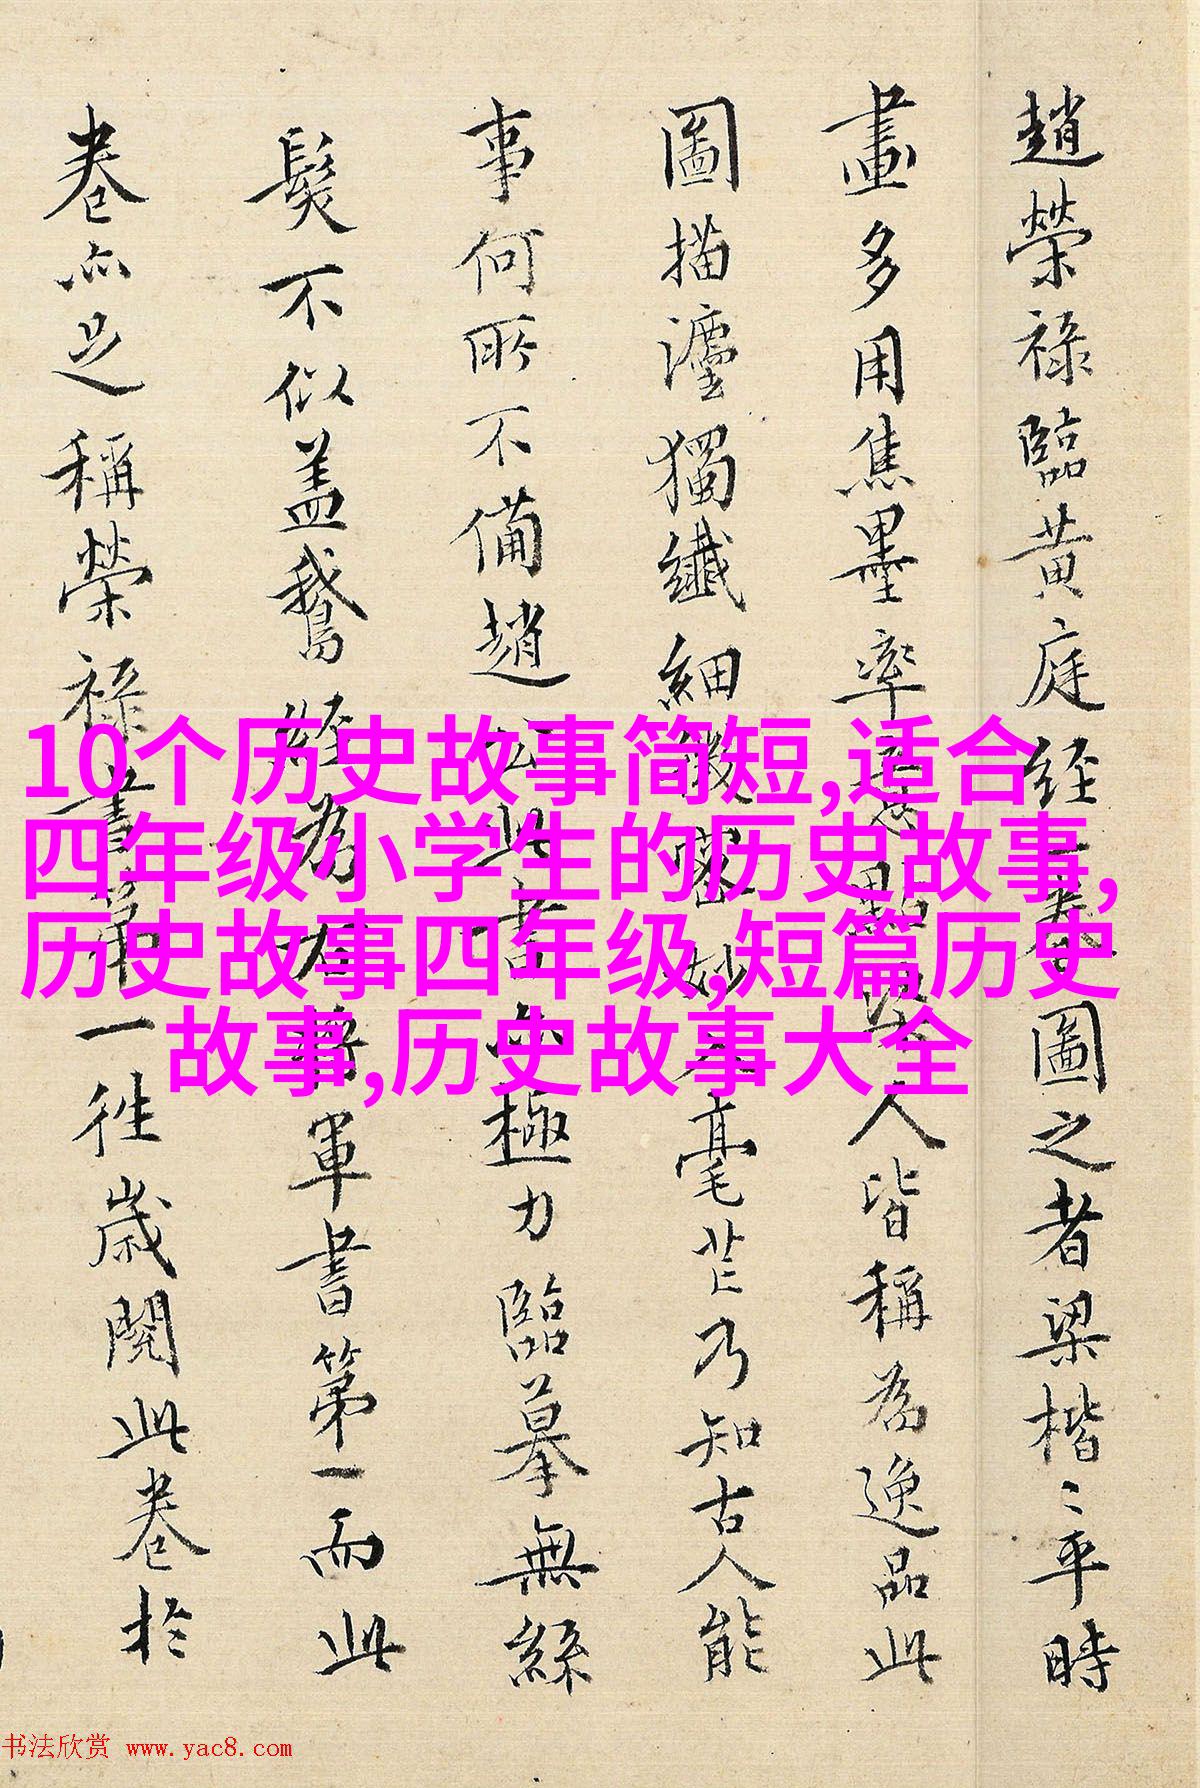 趙榮祿臨黃庭经一卷圖之者梁楷〻平時
畫多用焦墨率意點墨人皆稱為逸品此
圖描瀍獨纖細緻密妙入毫芒乃知古人能
事何所不備趙公此書亦極力臨摹無絲
髮不似盖鵞经為右將軍書第一而此
卷亦足稱榮祿書第一徃歲閱此卷於
10个历史故事简短,适合
四年级小学生的历史故事,
历史故事四年级,短篇历史
故事,历史故事大全
书法欣赏 www.yac8.com